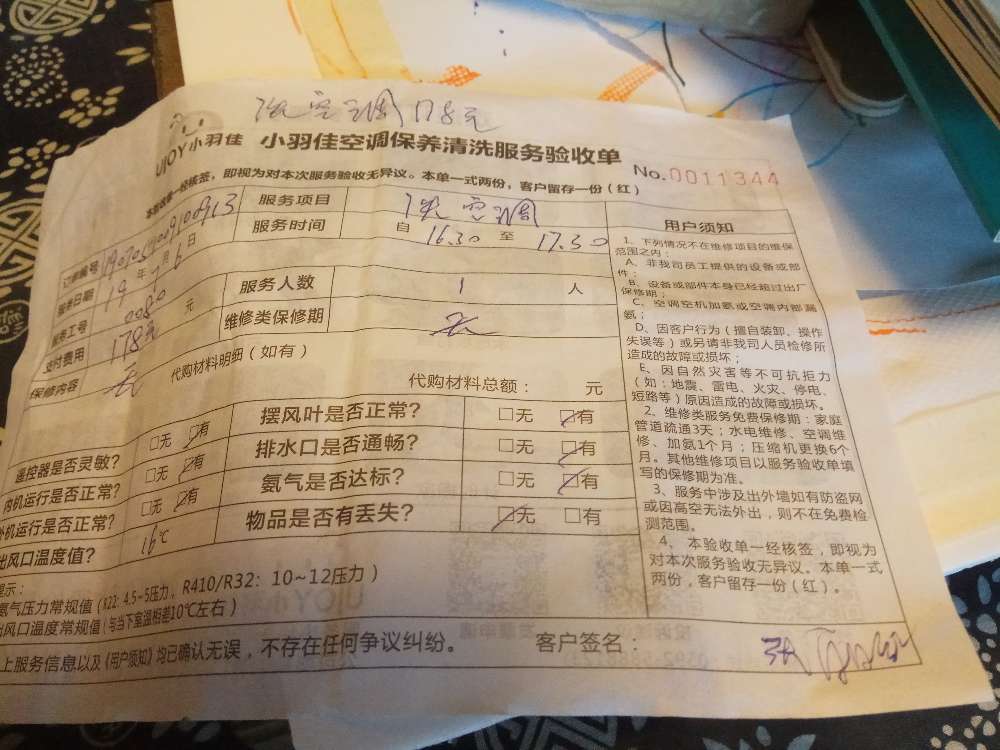 洗空调178元
UJOY小羽佳 小羽佳空调保养清洗服务验收单
No.0011344
本验收单一经核签，即视为对本次服务验收无异议。本单一式两份，客户留存一份（红）
订单编号
服务项目 洗空调
服务日期 19年7月6日
服务时间 自 16.30 至 17.30
服务工号 0080
服务人数 1 人
支付费用 178元 元
维修类保修期 无
保修内容 无
代购材料明细（如有）
代购材料总额： 元
遥控器是否灵敏？ □无 □有
摆风叶是否正常？ □无 □有
内机运行是否正常？ □无 □有
排水口是否通畅？ □无 □有
外机运行是否正常？ □无 □有
氨气是否达标？ □无 □有
出风口温度值？ 16℃
物品是否有丢失？ □无 □有
提示：
氨气压力常规值（R22：4.5~5压力，R410/R32：10~12压力）
出风口温度常规值（与当下室温相差10℃左右）
上服务信息以及《用户须知》均已确认无误，不存在任何争议纠纷。
客户签名：
用户须知
1、下列情况不在维修项目的维保
范围之内：
A、非我司员工提供的设备或部
件；
B、设备或部件本身已经超过出厂
保修期；
C、空调空机加氨或空调内部漏
氨；
D、因客户行为（擅自装卸、操作
失误等）或另请非我司人员检修所
造成的故障或损坏；
E、因自然灾害等不可抗拒力
（如：地震、雷电、火灾、停电、
短路等）原因造成的故障或损坏。
2、维修类服务免费保修期：家庭
管道疏通3天；水电维修、空调维
修、加氨1个月；压缩机更换6个
月。其他维修项目以服务验收单填
写的保修期为准。
3、服务中涉及出外墙如有防盗网
或因高空无法外出，则不在免费检
测范围。
4、本验收单一经核签，即视为
对本次服务验收无异议。本单一式
两份，客户留存一份（红）。